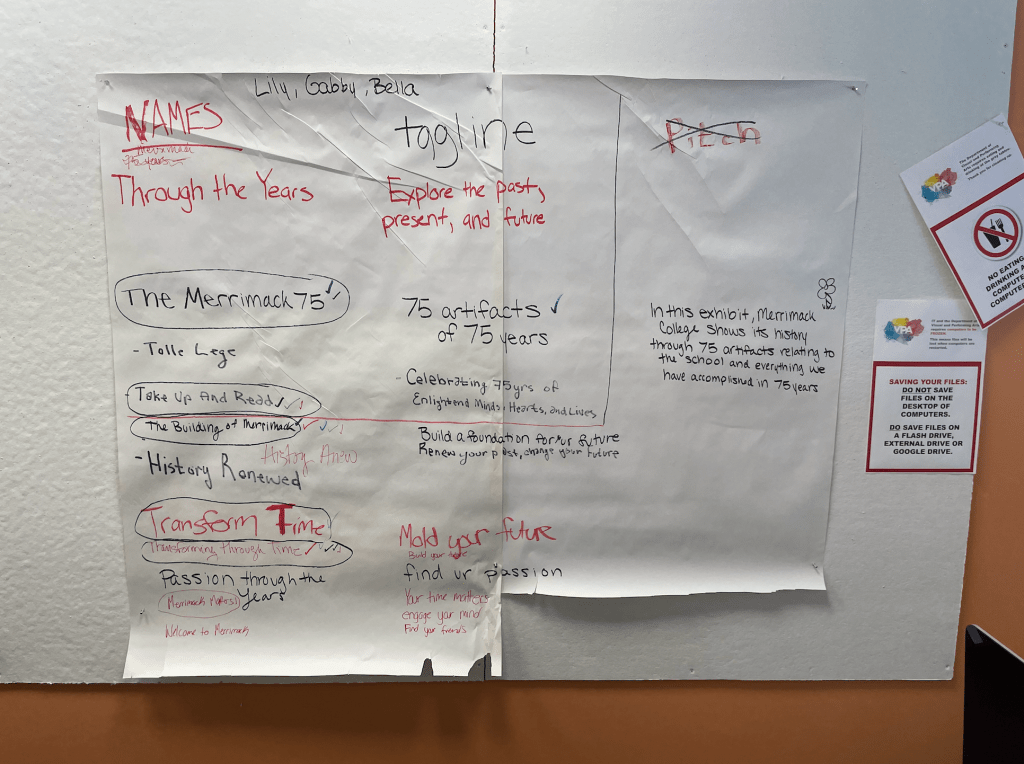 Lily, Gabby, Bella
NAMES
Merrimack
Through the Years
The Merrimack 75
- Tolle Lege
- Take Up And Read
The Building of Merrimack
History Anew
- History Renewed
Transform Time
Transforming through Time
Passion through the
Years
Merrimack Makers!
Welcome to Merrimack
tagline
Explore the past,
present, and future
75 artifacts
of 75 years
- Celebrating 75 yrs of
Enlightend Minds, Hearts, and Lives
Build a foundation for ur future
Renew your past, change your future
Mold your future
Build your
find ur passion
Your time matters
engage your mind
Find your friends
Pitch
In this exhibit, Merrimack
College shows its history
through 75 artifacts relating to
the school and everything we
have accomplished in 75 years
VPA
NO EATING
DRINKING A
COMPUTE
COMPUTE
VPA
SAVING YOUR FILES:
DO NOT SAVE
FILES ON THE
DESKTOP OF
COMPUTERS.
DO SAVE FILES ON
A FLASH DRIVE,
EXTERNAL DRIVE OR
GOOGLE DRIVE.